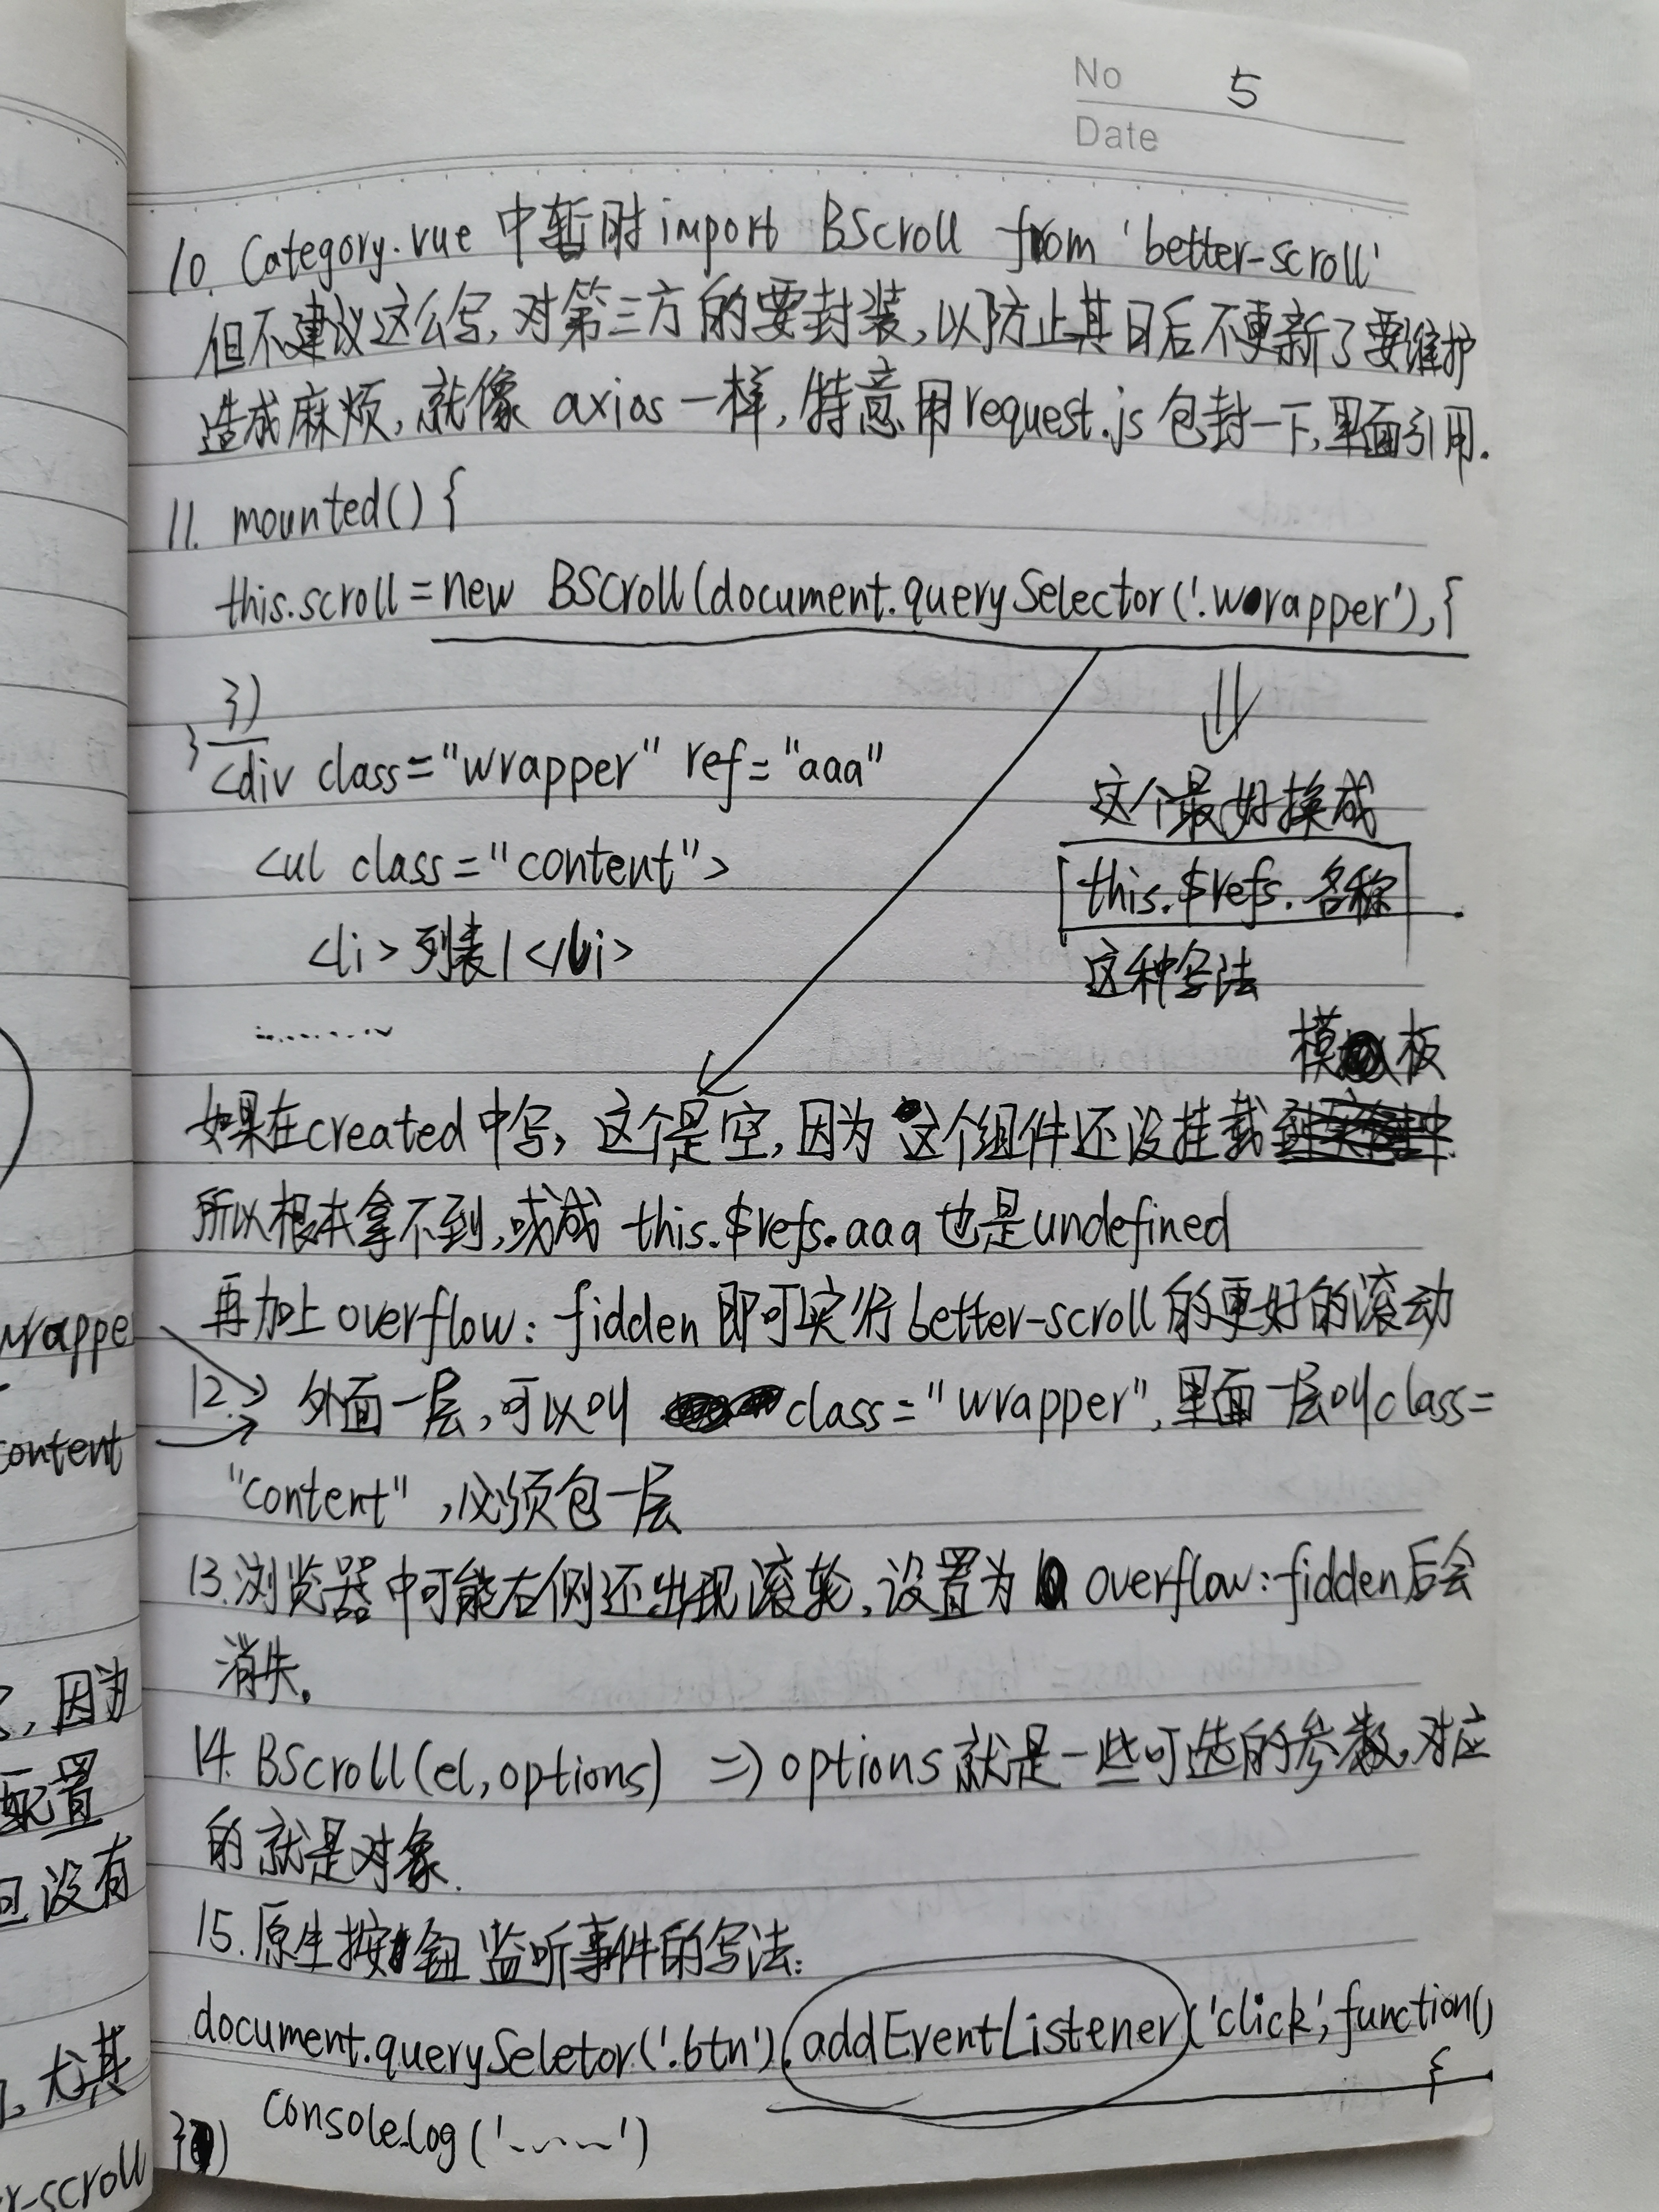 No 5
Date
10. Category.vue 中暂时import BScroll from 'better-scroll'
但不建议这么写,对第三方的要封装,以防止其日后不更新了要维护
造成麻烦,就像 axios 一样,特意用request.js包封一下,里面引用.
11. mounted() {
this.scroll = new BScroll(document.querySelector('.wrapper'),{
})
}
<div class="wrapper" ref="aaa"
这个最好换成
<ul class="content">
this.$refs.名称
<li>列表1</li>
这种写法
........
模板
如果在created中写,这个是空,因为这个组件还没挂载
所以根本拿不到,或成 this.$refs.aaa也是undefined
再加上overflow: fidden即可实行better-scroll的更好的滚动
wrappe
12. 外面一层,可以叫 class="wrapper",里面一层叫class=
content
"content",必须包一层
13.浏览器中可能右侧还出现滚轮,设置为 overflow:fidden后会
消失。
,因为
14. BScroll(el,options) => options就是一些可选的参数,对应
配置
的就是对象.
没有
15.原生按钮监听事件的写法:
document.querySeletor('.btn').addEventListener('click',function()
{
,尤其
console.log('~~~')
})
r-scroll